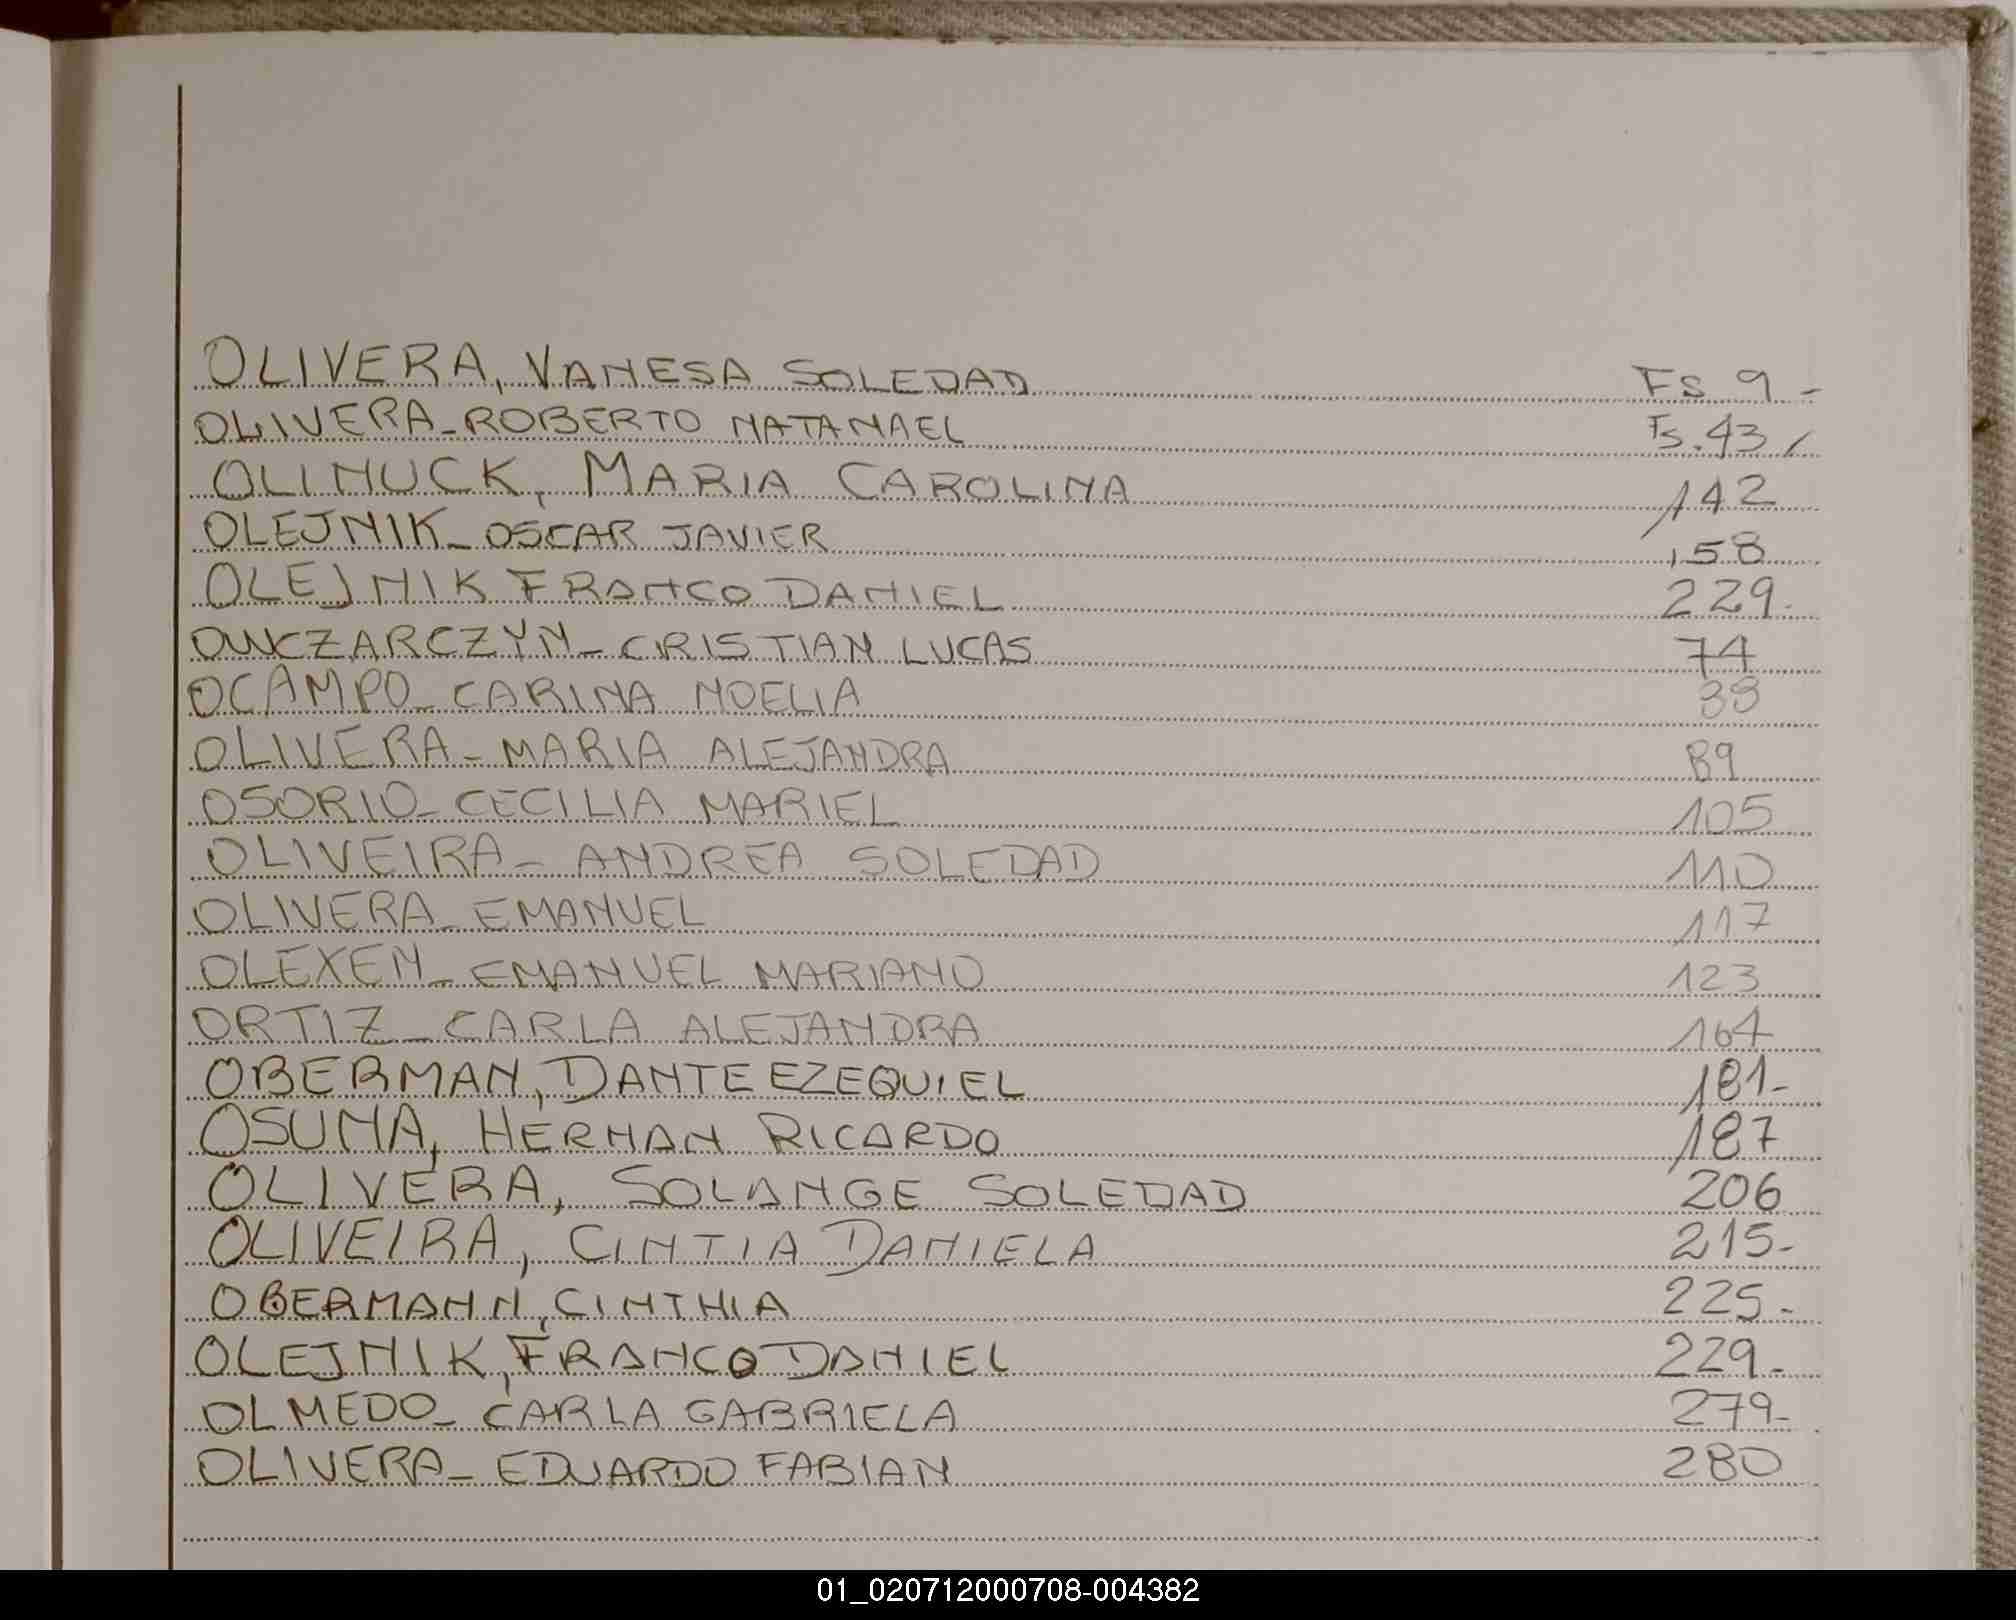 OLIVERA, VANESA SOLEDAD Fs 9 -
OLIVERA - ROBERTO NATANAEL Fs. 43 /
OLINUCK, MARIA CAROLINA 142
OLEJNIK - OSCAR JAVIER 158
OLEJNIK FRANCO DANIEL 229-
OWCZARCZYN - CRISTIAN LUCAS 74
OCAMPO - CARINA NOELIA
OLIVERA - MARIA ALEJANDRA 89
OSORIO - CECILIA MARIEL 105
OLIVEIRA - ANDREA SOLEDAD 110
OLIVERA - EMANUEL 117
OLEXEN - EMANUEL MARIANO 123
ORTIZ - CARLA ALEJANDRA 164
OBERMAN, DANTE EZEQUIEL 181-
OSUNA, HERNAN RICARDO 187
OLIVERA, SOLANGE SOLEDAD 206
OLIVEIRA, CINTIA DANIELA 215-
OBERMANN, CINTHIA 225-
OLEJNIK, FRANCO DANIEL 229-
OLMEDO - CARLA GABRIELA 279-
OLIVERA - EDUARDO FABIAN 280
01_020712000708-004382